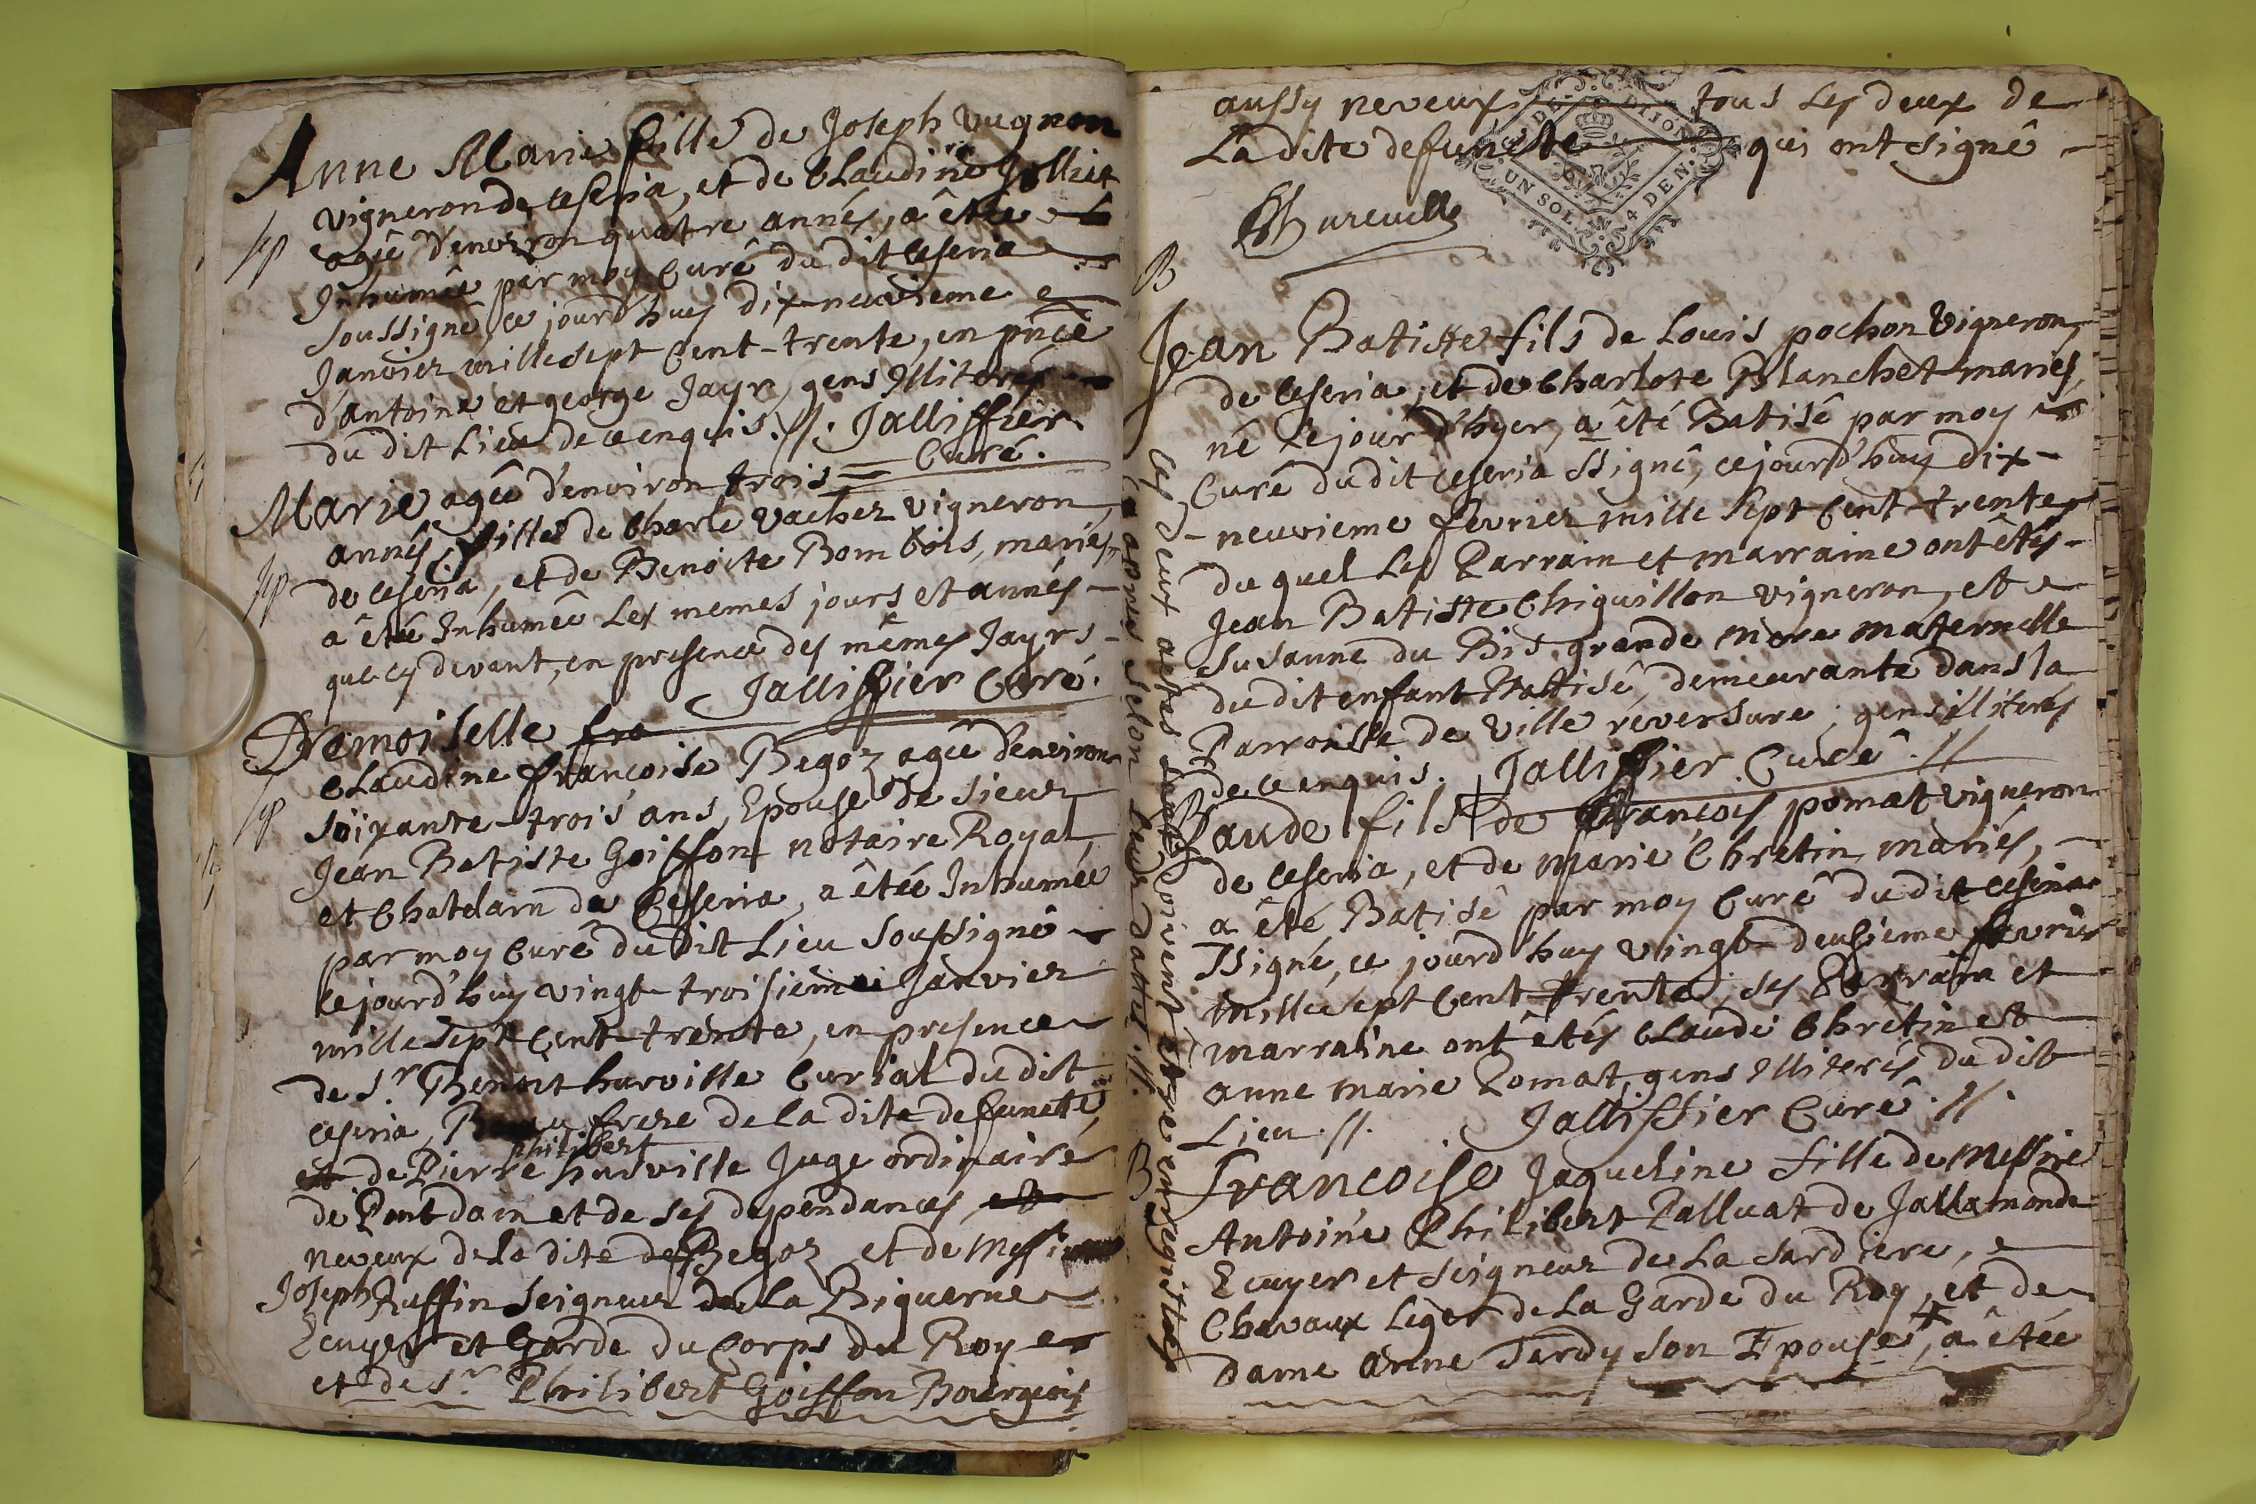 Anne Marie fille de Joseph Vugnon
vigneron de ceseria, et de Claudine Jolliet
agée d'environ quatre années, a êtée
Inhumée par moy Curé du dit Ceseria
soussigné, ce jourd'huy dix neuvieme
Janvier mille sept Cent-trente, en pnce
d'antoine et george Jayr, gens Illiterés
du dit Lieu de ce enquis .//. Jalliffier
Curé.
Sep
Marie agée d'environ trois
années, fille de Charle Vacher vigneron,
de ceseria, et de Benoite Bombois, mariés,
a êtée Inhumée Les memes jours et années
que cy devant, en presence des mêmes Jayrs
Jalliffier Curé.
Sep
Demoiselle fra
Claudine françoise Begoz agée d'environ
soixante-trois ans, Epouse de sieur
Jean Batiste Goiffon notaire Royal,
et Chatelain de Ceseria, a êtée Inhumée
par moy Curé du dit Lieu soussigné
cejourd'huy vingt-troisieme Janvier
mille sept Cent-trente, en presence
de S.r Benoit hurville Curial du dit
ceseria, frere de la dite defuncte,
philibert
et de Pierre hurville Juge ordinaire
de Pontdain et de ses dependances, et
neveux de la dite de Begoz et de Messire
Joseph Ruffin seigneur de La Biguerne
Ecuyer et Garde du Corps du Roy
et de S.r Philibert Goiffon Bourgeois
Sep
aussy neveux tous Les deux de
La dite defuncte qui ont signé
DIJON
UN SOL 4 DEN.
Hureville
B
Jean Batiste fils de Louis pochon Vigneron,
de ceseria, et de Charlote Blanchet mariés,
né Le jour d'hyer, a été Batisé par moy
Curé du dit ceseria ssigné, ce jourd'huy dix-
-neuvieme fevrier mille sept Cent-trente
du quel Les Parrain et marraine ont êtés
Jean Batiste Chiquillon vigneron, et
Susanne du Bis grande mere maternelle
du dit enfant Battisé, demeurante dans la
Parroisse de Ville reversure; gens illiterés
de ce enquis. Jalliffier Curé .//
B
Claude fils de françois pomat vigneron
de ceseria, et de Marie Chretin, mariés,
a été Batisé par moy Curé du dit ceseria
ssigné, ce jourd'huy vingt deusieme fevrier
mille sept Cent-trente, ses Parrain et
marraine ont êtés Claude Chretin et
anne marie Pomat, gens Illiterés du dit
Lieu .//. Jalliffier Curé .//.
B
francoise Jaqueline fille de Messire
Antoine Philibert Palluat de Jallamonde
Ecuyer et seigneur de La sardiere,
Chevaux Leger de La Garde du Roy, et de
dame Anne Tardy son Epouse, a êtée
Ces deux actes doivent être enregistrés
cy apres selon leur datte .//.